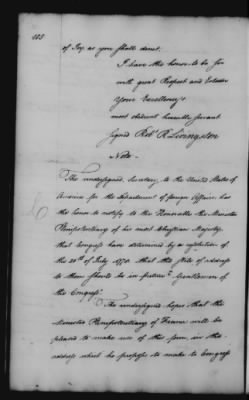 of Joy as you shall direct.
I have the honor to be Sir
with great Respect and Esteem
Your Excellency's
most obedient humble servant
signed Robt R Livingston
Note
The undersigned, Secretary to the United States of
America for the Department of foreign Affairs, has
the honor to notify to the Honorable the Minister
Plenipotentiary of his most Christian Majesty,
that Congress have determined by a resolution of
the 20th of July 1778 that the stile of address
to them should be in future "Gentlemen of
the Congress"
The undersigned hopes that the
Minister Plenipotentiary of France will be
pleased to make use of this form in the
address which he proposes to make to Congress